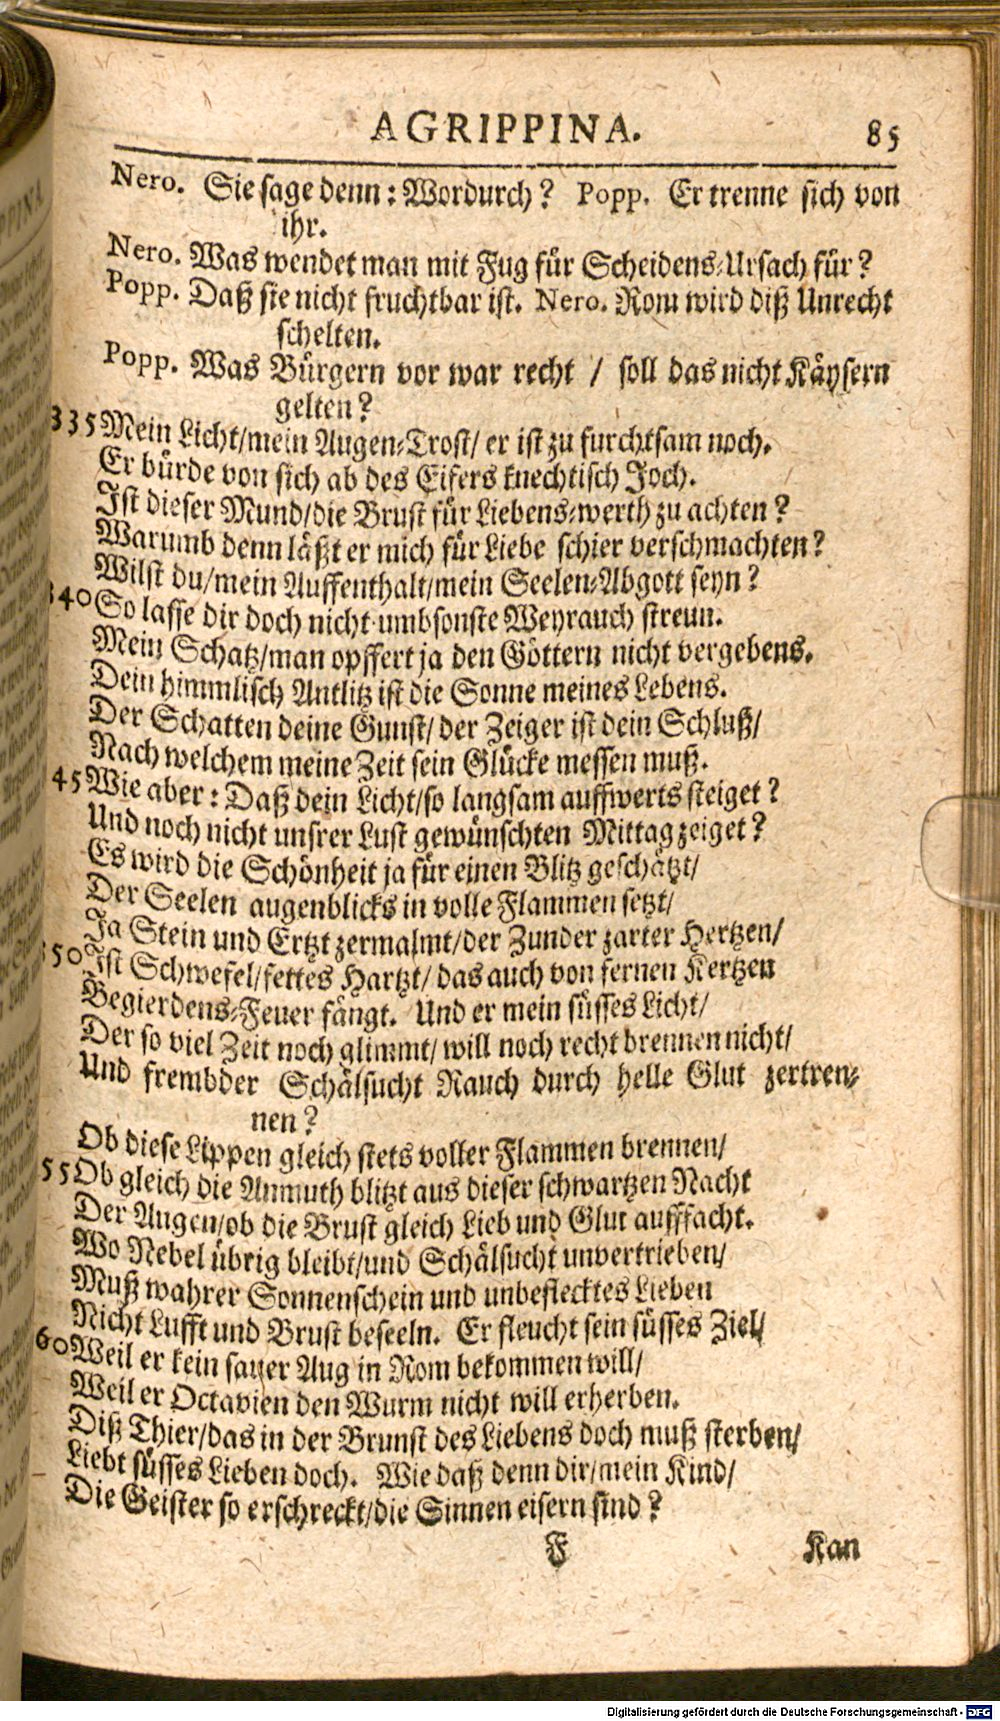 AGRIPPINA. 85
Nero. Sie sage denn: Wordurch? Popp. Er trenne sich von
ihr.
Nero. Was wendet man mit Fug für Scheidens-Ursach für?
Popp. Daß sie nicht fruchtbar ist. Nero. Rom wird diß Unrecht
schelten.
Popp. Was Bürgern vor war recht / soll das nicht Käysern
gelten?
335 Mein Licht/mein Augen-Trost/ er ist zu furchtsam noch.
Er bürde von sich ab des Eifers knechtisch Joch.
Ist dieser Mund/die Brust für Liebens-werth zu achten?
Warumb denn läßt er mich für Liebe schier verschmachten?
Wilst du/mein Auffenthalt/mein Seelen-Abgott seyn?
340 So lasse dir doch nicht umbsonste Weyrauch streun.
Mein Schatz/man opffert ja den Göttern nicht vergebens.
Dein himmlisch Antlitz ist die Sonne meines Lebens.
Der Schatten deine Gunst/ der Zeiger ist dein Schluß/
Nach welchem meine Zeit sein Glücke messen muß.
45 Wie aber: Daß dein Licht/so langsam auffwerts steiget?
Und noch nicht unsrer Lust gewünschten Mittag zeiget?
Es wird die Schönheit ja für einen Blitz geschätzt/
Der Seelen augenblicks in volle Flammen setzt/
Ja Stein und Ertzt zermalmt/der Zunder zarter Hertzen/
350 Ist Schwefel/fettes Hartzt/ das auch von fernen Kertzen
Begierdens-Feuer fängt. Und er mein süsses Licht/
Der so viel Zeit noch glimmt/ will noch recht brennen nicht/
Und frembder Schälsucht Rauch durch helle Glut zertren-
nen?
Ob diese Lippen gleich stets voller Flammen brennen/
55 Ob gleich die Anmuth blitzt aus dieser schwartzen Nacht
Der Augen/ob die Brust gleich Lieb und Glut aufffacht.
Wo Nebel übrig bleibt/und Schälsucht unvertrieben/
Muß wahrer Sonnenschein und unbeflecktes Lieben
Nicht Lufft und Brust beseeln. Er fleucht sein süsses Ziel/
60 Weil er kein sauer Aug in Rom bekommen will/
Weil er Octavien den Wurm nicht will erherben.
Diß Thier/das in der Brunst des Liebens doch muß sterben/
Liebt süsses Lieben doch. Wie daß denn dir/mein Kind/
Die Geister so erschreckt/die Sinnen eisern sind?
F Kan
Digitalisierung gefördert durch die Deutsche Forschungsgemeinschaft - DFG